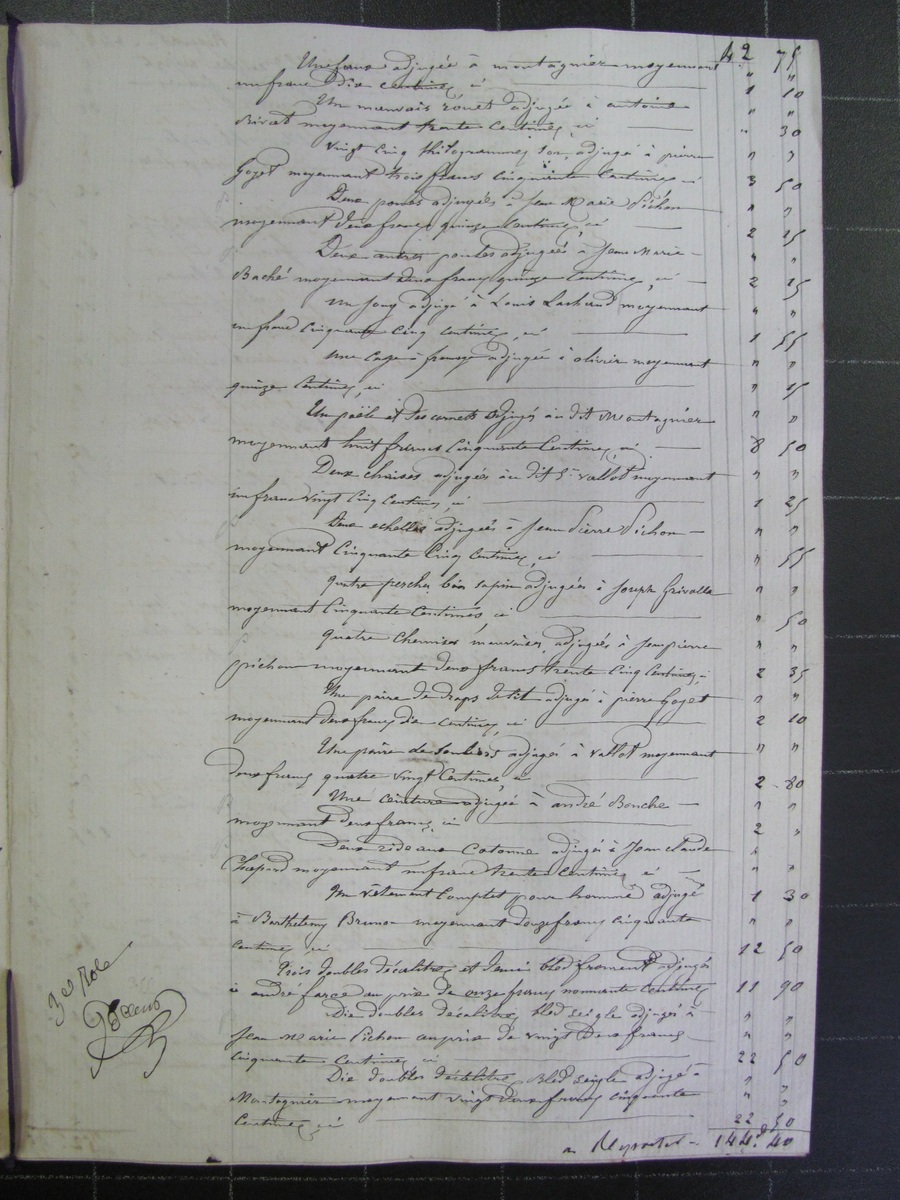 42 75
Une faux adjugée à montagnier moyennant " "
un franc dix centimes ci 1 10
Un mauvais rouet adjugé à antoine " "
Rivat moyennant trente Centimes, ci " 30
Vingt cinq kilogrammes son, adjugé à pierre " "
Goget moyennant trois francs Cinquante Centimes ci 3 50
Deux poules adjugées à Jean Marie Pichon " "
moyennant deux francs quinze Centimes, ci 2 15
Deux autres poules adjugées à Jean Marie " "
Baché moyennant deux francs quinze Centimes, ci 2 15
Un joug adjugé à Louis Lachaud moyennant " "
un franc Cinquante Cinq Centimes, ci 1 55
Une Cage à fromage adjugée à olivier moyennant " "
quinze Centimes, ci " 15
Un poële et des cornets adjugés au dit Montagnier " "
moyennant huit francs Cinquante Centimes, ci 8 50
Deux chaises adjugées au dit Sr Vallot moyennant " "
un franc Vingt Cinq Centimes, ci 1 25
Deux echelles adjugées à Jean Pierre Pichon " "
moyennant Cinquante Cinq Centimes, ci " 55
quatre perches bois sapin adjugées à Joseph Grivolla " "
moyennant Cinquante Centimes ci " 50
quatre Chemises mauvaises adjugées à Jean pierre " "
pichon moyennant deux francs trente Cinq Centimes, ci 2 35
Une paire de draps de lit adjugé à pierre Goget " "
moyennant deux francs dix Centimes, ci 2 10
Une paire de souliers adjugée à Vallot moyennant " "
deux francs quatre vingt Centimes ci 2 80
Une ceinture adjugée à andré Bouche " "
moyennant deux francs, ci 2 "
Deux rideaux Cotonne adjugés à Jean Claude " "
Chapard moyennant un franc trente Centimes ci " "
Un vêtement Complet pour homme adjugé 1 30
à Barthelemy Brunon moyennant douze francs cinquante " "
Centimes, ci 12 50
Trois doubles décalitres et demi bled froment adjugés
à andré farge au prix de onze francs nonante Centimes 11 90
Dix doubles décalitres, bled seigle adjugés à " "
Jean Marie Pichon au prix de vingt Deux francs " "
Cinquante Centimes ci 22 50
Dix doubles décalitres, Bled seigle adjugé à " "
Montagnier moyennant vingt deux francs cinquante " "
Centimes, ci 22 50
a Reporter 144 f 40
3e Role